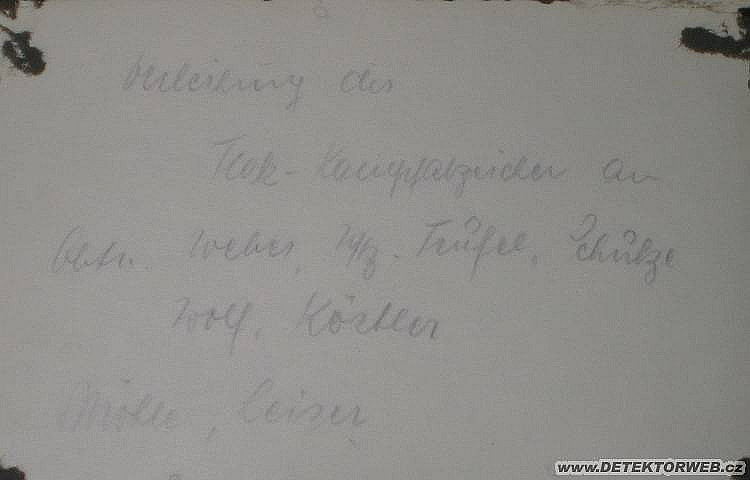 Verleihung des
Flak-Kampfabzeichen an
Obtr. Weber, Uffz. Teufel, Schulze
Wolf, Köstler
Leiser
www.DETEKTORWEB.cz